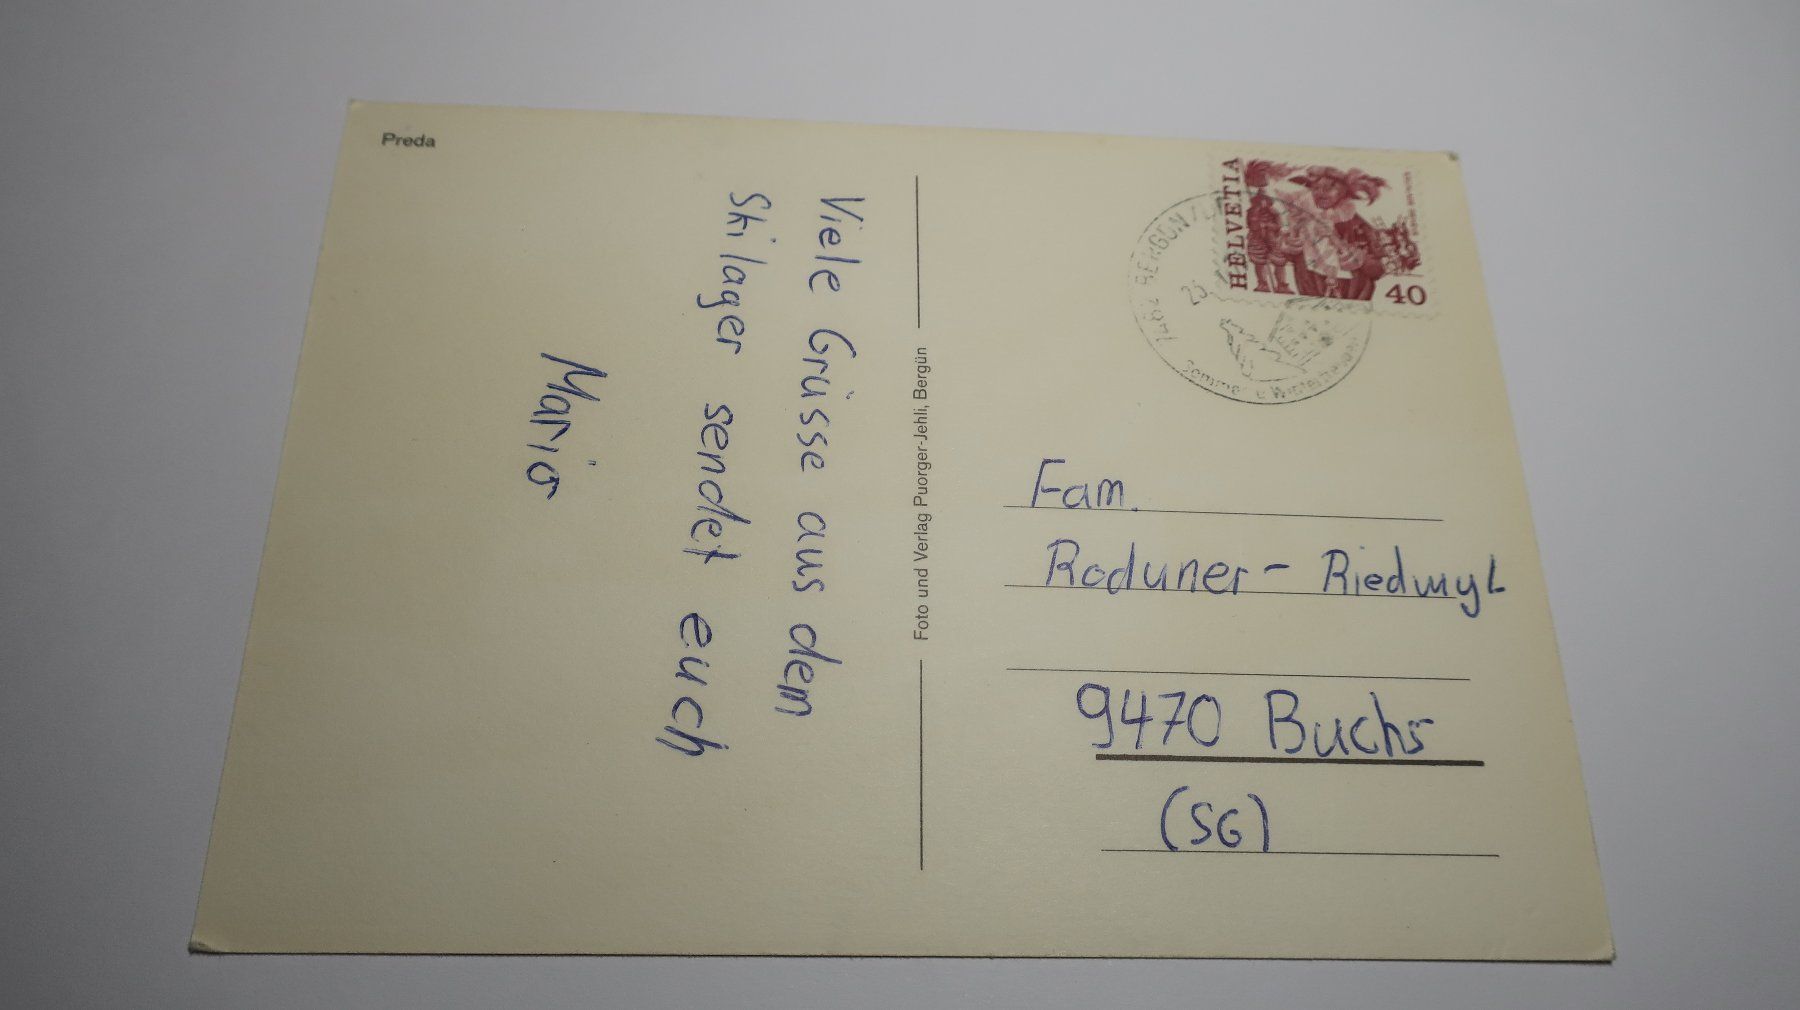 Preda
Viele Grüsse aus dem
Skilager sendet euch
Mario
Foto und Verlag Puorger-Jehli, Bergün
HELVETIA
40
7482 BERGÜN
23
Sommer u. Winter
Fam.
Roduner - Riedwyl
9470 Buchs
(SG)